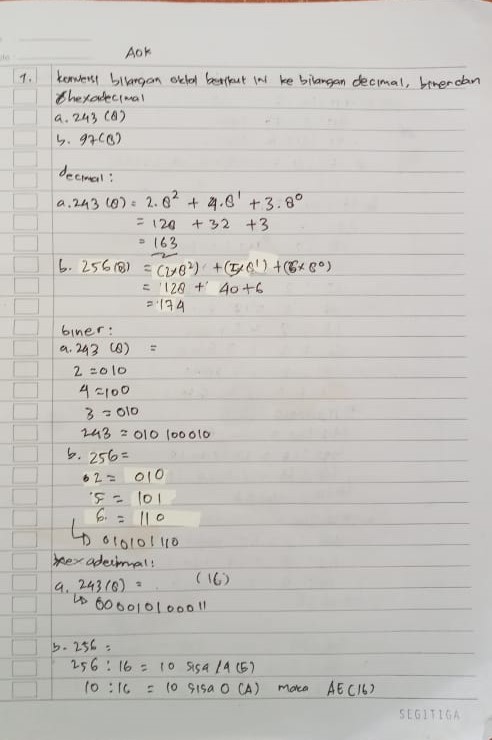 AOK
1. konversi bilangan oktal berikut ini ke bilangan decimal, biner dan
hexadecimal
a. 243 (8)
b. 97 (8)
decimal :
a. 243 (8) = 2.8² + 4.8¹ + 3.8⁰
= 128 + 32 + 3
= 163
b. 256 (8) = (2x8²) + (5x8¹) + (6x8⁰)
= 128 + 40 + 6
= 174
biner :
a. 243 (8) =
2 = 010
4 = 100
3 = 010
243 = 010 100010
b. 256 =
2 = 010
5 = 101
6. = 110
↳ 010101110
hexadecimal :
a. 243 (8) = (16)
↳ 000010100011
b. 256 =
256 : 16 = 10 sisa 14 (E)
10 : 16 = 10 sisa 0 (A) maka AE (16)
SEGITIGA